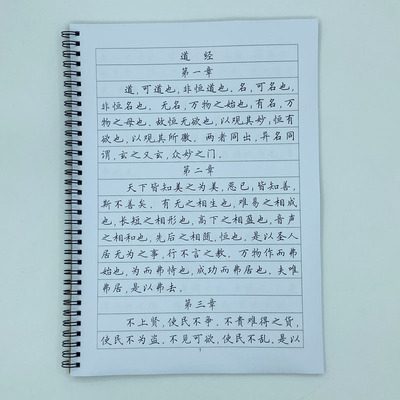 道 经
第一章
道,可道也,非恒道也.名,可名也,
非恒名也.无名,万物之始也,有名,万
物之母也.故恒无欲也,以观其妙;恒有
欲也,以观其所徼.两者同出,异名同
谓,玄之又玄,众妙之门.
第二章
天下皆知美之为美,恶已;皆知善,
斯不善矣.有无之相生也,难易之相成
也,长短之相形也,高下之相盈也,音声
之相和也,先后之相随,恒也.是以圣人
居无为之事,行不言之教.万物作而弗
始也,为而弗恃也,成功而弗居也.夫唯
弗居,是以弗去.
第三章
不上贤,使民不争.不贵难得之货,
使民不为盗.不见可欲,使民不乱,是以
1